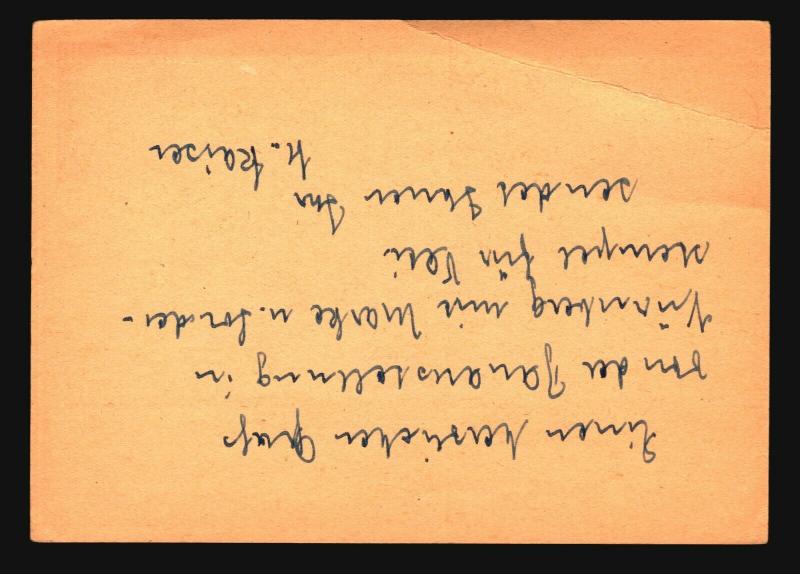 Einen herzlichen Gruß
von der Bauausstellung in
Nürnberg mit Marke u. Sonder-
stempel für Uli.
sendet Ihnen Ihr
H. Kaiser